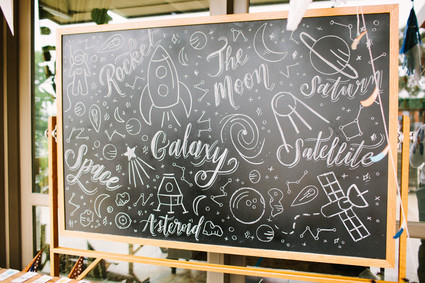 Rocket
The
Moon
Saturn
Space
Galaxy
Satellite
Asteroid